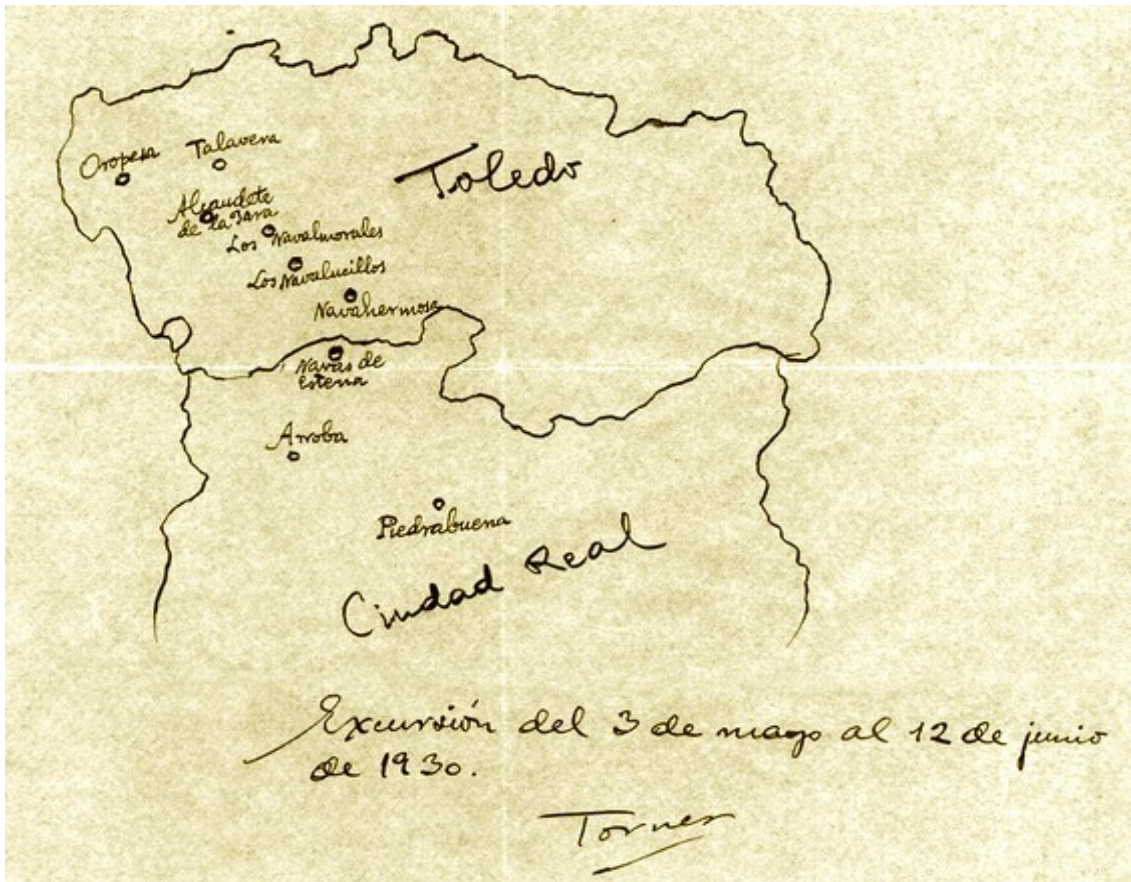 Oropesa
Talavera
Toledo
Alcaudete
de la Jara
Los Navalmorales
Los Navalucillos
Navahermosa
Navas de
Estena
Arroba
Piedrabuena
Ciudad Real
Excursión del 3 de mayo al 12 de junio
de 1930.
Torner